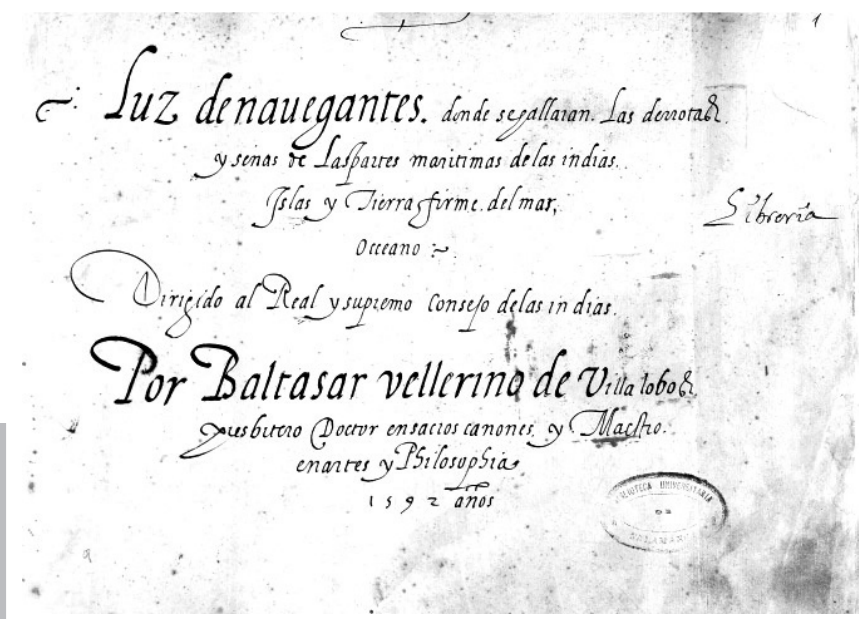 1
Luz de nauegantes. donde se hallaran. Las derrotas.
y senas de Las partes maritimas de las indias.
Islas y Tierra firme. del mar,
Occeano
Libreria
Dirigido al Real y supremo Consejo de las indias.
Por Baltasar vellerino de Villa lobos
presbitero Doctor en sacros canones, y Maestro.
en artes y Philosophia
1592 años
BIBLIOTECA UNIVERSITARIA
DE
SALAMANCA